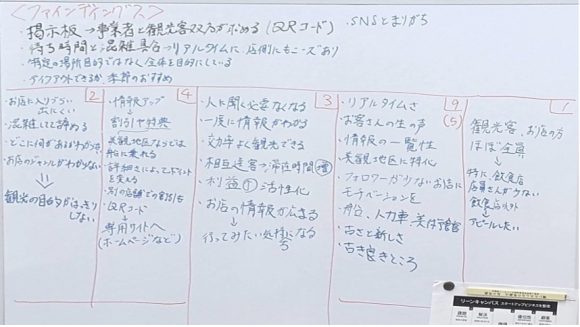 <ファインディングス>
・SNSとまりがち
・掲示板→事業者と観光客双方が求める(QRコード)
・待ち時間と混雑具合→リアルタイムに、店側にもニーズあり
・特定の場所目的ではなく全体を目的にしている
・テイクアウトできるか、季節のおすすめ
2
・お店に入りづらい
出にくい
・混雑してて諦める
・どこに何があるかわからない
・お店のジャンルがわからない
観光の目的がはっきり
しない
4
・情報アップ
割引や特典
・美観地区ならでは
船に乗れる
・詳細さによってポイント
を変える
・別の店舗での割引も
・QRコード
専用サイトへ
(ホームページなど)
3
・人に聞く必要なくなる
・一度に情報がわかる
・効率よく観光できる
・相互送客→滞在時間増
・利益①活性化
・お店の情報が広まる
行ってみたい気持ちになる
9
(5)
・リアルタイムさ
・お客さんの生の声
・情報の一覧性
・美観地区に特化
・フォロワーが少ないお店に
モチベーションを
・船、人力車、美術館
・古さと新しさ
・古き良きところ
1
観光客、お店の方
ほぼ全員
特に、飲食店
店員さんが少ない
飲食店以外
アピールしたい
リーンキャンバス